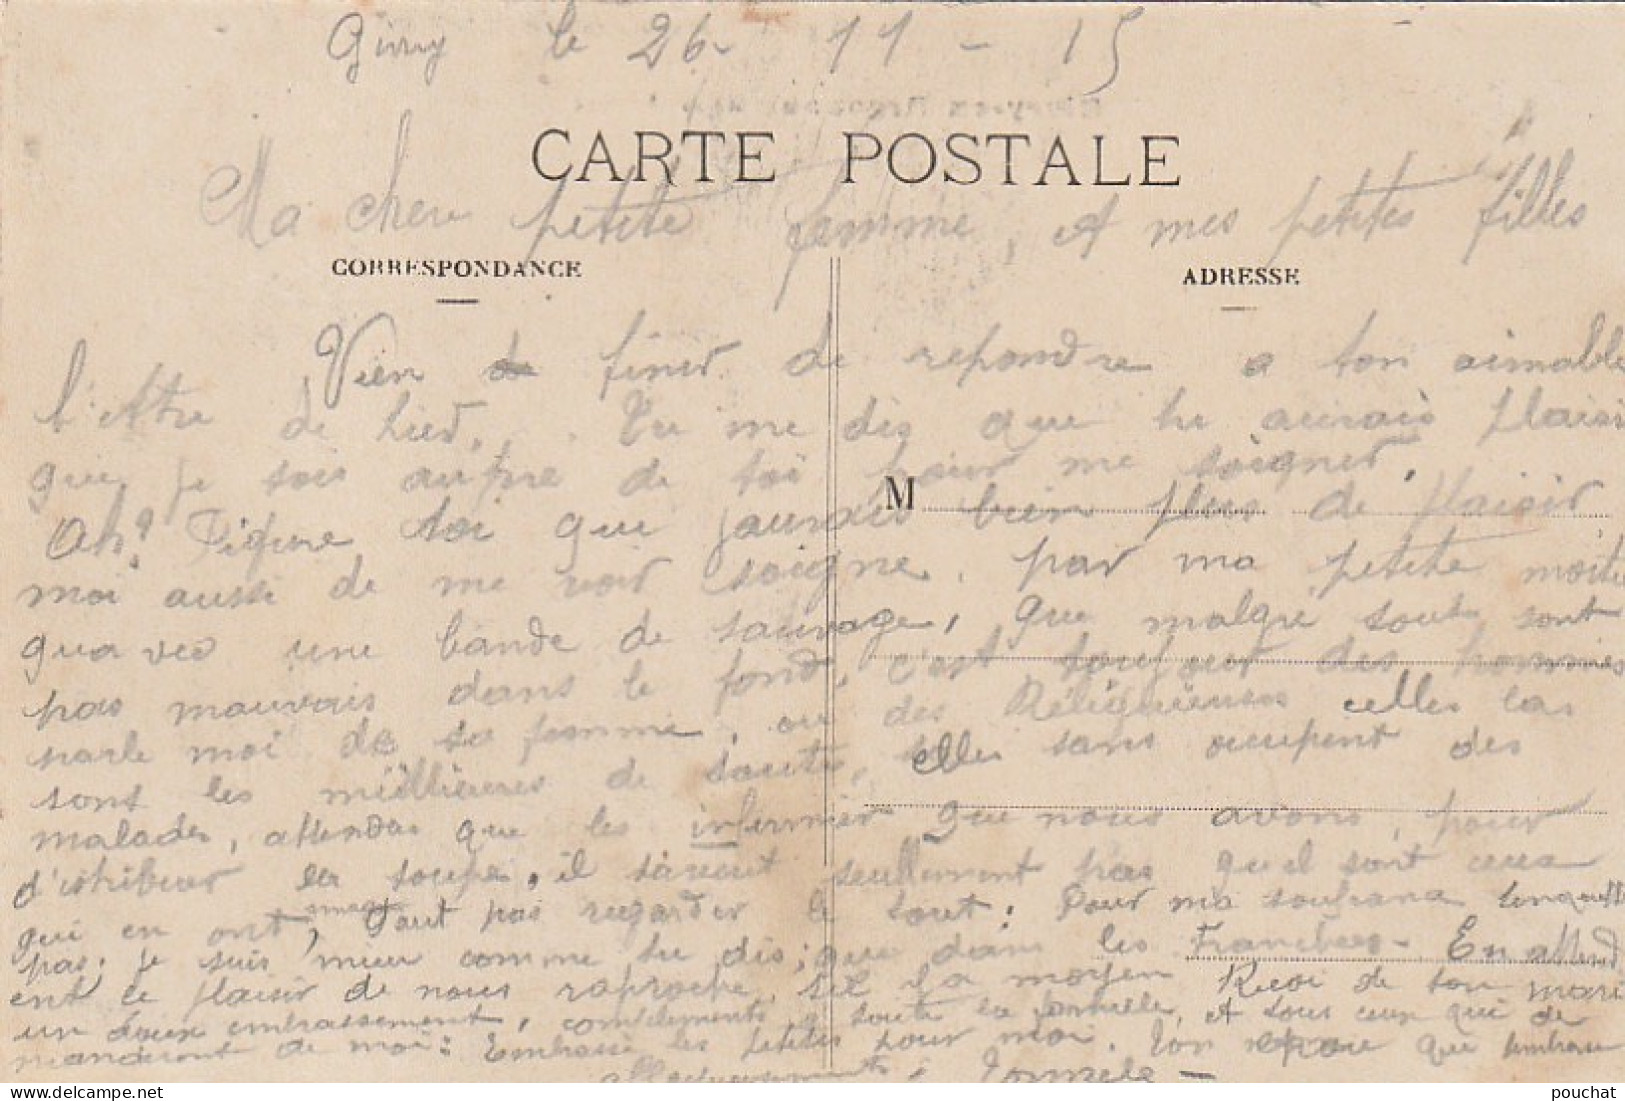 Givry le 26 - 11 - 15
CARTE POSTALE
Ma cher petite femme, et mes petites filles
CORRESPONDANCE
ADRESSE
Vien de finir de repondre a ton aimable
l'ettre de hier. Tu me dis que tu aurais plaisir
que je sois aupre de toi pour me soigner.
M
Ah? Figure toi que jaurais bien plus de plaisir
moi aussi de me voir soigne, par ma petite moitie
qua vec une bande de sauvage, que malgré tout sont
pas mauvais dans le fond, c'est toujour des hommes
parle moi de sa femme, ou des Réligieuses celles las
sont les meillieures de toute, elles sans occupent des
malades, attendas que les infirmier que nous avons, pour
d'istribuer la soupe, il savent seullement pas quel sont ceux
qui en ont , Faut pas regarder le tout. Pour ma soufrance
pas. je suis mieu comme tu dis; que dans les Franchees. En attend
ent le plaisir de nous raproche, sil la moyen Recoi de ton mari
un doux embrassement, compléments a toute la famille, et tous ceux qui de
manderont de moi: Embrasse les petites pour moi. Ton epoux que tembrasse